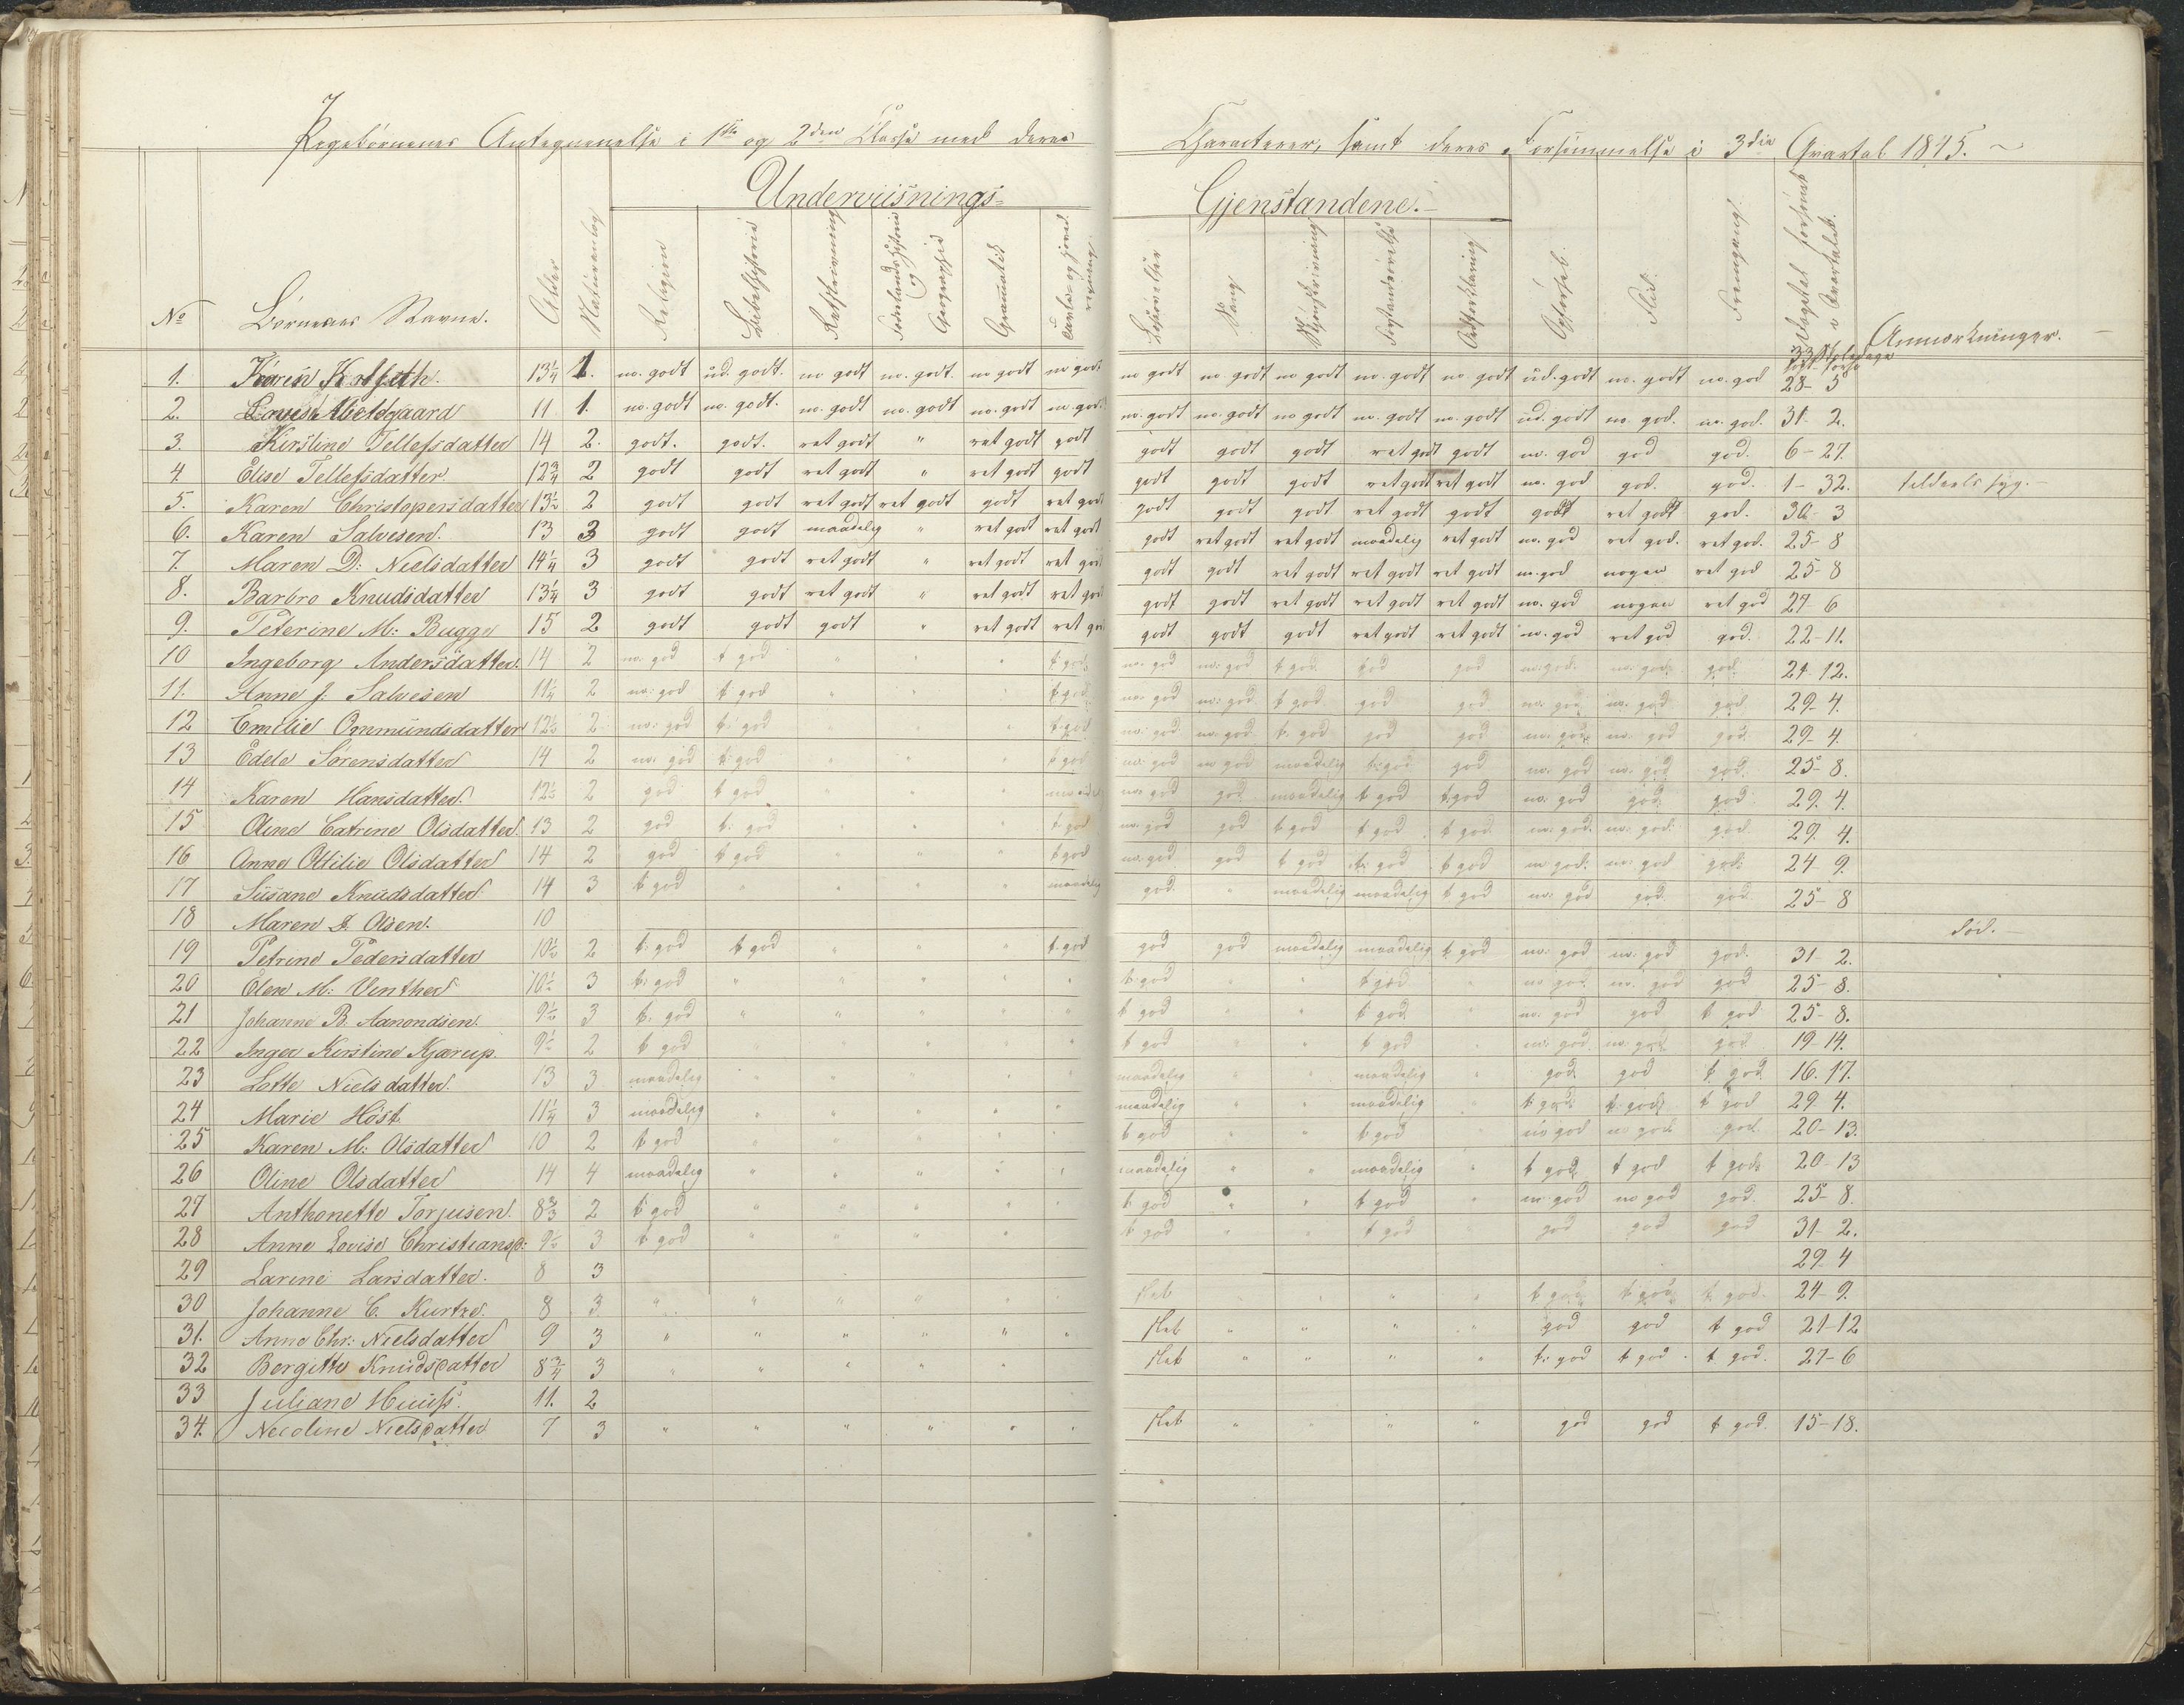 Pigebørnenes Antegnenelse i 1ste og 2den Classe med deres Characterer, samt deres Forsømmelse i 3die Qvartal 1875.
Underviisnings= Gjenstandene.
No Børnenes Navne. Alder Naturanlæg Religion Bibelhistorie Retskrivning Fædrelandshistorie og Geographie Gramatik Tavle- og Hoved regning Læseøvelser Sang Skjønskrivning Forstandsøvelse Opførsel. Flid. Fremgang. Anmærkninger.
33 Skoledage
1. Karen 13¼ 1. m. godt ud. godt. m godt m. godt. m godt m godt m godt m. godt m godt m. godt m godt ud. godt m. godt m. god 28-5
2. 11 1. m. godt m. godt. m. godt m. godt m. godt m. godt m. godt m. godt m godt m. godt m. godt ud. godt m. god. m. god. 31-2.
3. Kirstine Tellefsdatter 14 2. godt. godt. ret godt " ret godt godt godt godt godt ret godt godt m. god god god. 6-27.
4. Elise Tellefsdatter. 12¾ 2 godt godt ret godt " ret godt godt godt godt godt ret godt ret godt m. god god. god. 1-32. tildeels syg.
5. Karen Christopersdatter 13½ 2 godt godt ret godt ret godt godt ret godt godt godt godt ret godt godt godt ret godt god. 30-3
6. Karen Salvesen. 13 3 godt godt maadelig " ret godt ret godt godt ret godt ret godt maadelig ret godt m. god ret god. ret god. 25-8
7. Maren D: Nielsdatter 14¼ 3 godt godt ret godt " ret godt ret godt godt godt ret godt ret godt ret godt m. god nogen ret god 25-8
8. Barbro Knudsdatter 13¼ 3 godt godt ret godt " ret godt ret godt godt godt ret godt ret godt ret godt m. god nogen ret god 27-6
9. Peterine M: Bugge 15 2 godt godt godt " ret godt ret godt godt godt godt ret godt ret godt m. god ret god god. 22-11.
10 Ingeborg Andersdatter. 14 2 m. god t god " " " t god. m. god m: god t god. god god m: god. m: god. god. 21-12.
11. Anne J: Salvesen 11¼ 2 m: god t god " " " t god m: god m: god t god. god god m: god m: god god 29-4.
12 Emilie Ommundsdatter 12½ 2 m: god t: god " " " t god m: god. m: god. t: god god god m: god. m: god god. 29-4.
13 Edele Sørensdatter 14 2 m: god t: god " " " t god m: god m god maadelig t: god god m: god m: god god. 25-8.
14 Karen Hansdatter. 12½ 2 god t god " " " maadel m: god god maadelig t god t: god m: god god god 29.4.
15 Oline Catrine Olsdatter. 13 2 god t: god " " " t god m: god god t god t god t god. m: god. m: god. god. 29.4.
16 Anne Ottilie Olsdatter 14 2 god t god " " " t god m: god god t god t: god t god m god: m: god god: 24 9.
17 Susane Knudsdatter 14 3 t god " " " " maadelig god. " maadelig maadelig t god m: god god. god 25-8
18 Maren Olsen. 10 død.
19 Petrine Pedersdatter 10½ 2 t: god t god " " " t. god god god maadelig maadelig t god m: god m: god god. 31-2.
20 Elen M: Vinther 10½ 3 t: god " " " " " t god " " t god " m god. m. god god 25-8.
21 Johanne B. Aanondsen. 9½ 3 t. god " " " " " t god " " t god " m. god god t god 25-8.
22 Inger Kirstine Kjærup. 9½ 2 t god " " " " " t god " " t god " m: god. m: god. god 19.14.
23 Lotte Nielsdatter. 13 3 maadelig " " " " " maadelig " " maadelig " god. god t god 16.17.
24 Marie Höst 11¼ 3 maadelig " " " " " maadelig " " maadelig " t god. t god. t god 29 4.
25 Karen M: Olsdatter 10 2 t god " " " " " t god " " t god " m god m god. god. 20-13.
26 Oline Olsdatter 14 4 maadelig " " " " " maadelig " " maadelig " t god. t god t god. 20-13
27 Anthonette Torjusen. 8⅔ 2 t god " " " " " t god " " t god " m god m god god. 25-8.
28 Anne Lovise Christiansd: 9½ 3 t god " " " " t god " " t god " god god god 31-2.
29 Larine Larsdatter. 8 3 29-4
30 Johanne C. Kurtze. 8 3 " " " " " " Stab " " " " t god t god t. god. 24-9.
31. Anne Chr: Nielsdatter 9 3 " " " " " " Stab " " " " god god t god 21-12
32 Bergitte Knudsdatter 8¾ 3 " " " " " Stab " " " " t: god t god. t god. 27-6
33 Juliane Huuss. 11. 2
34. Necoline Nielsdatter 7 3 " " " " " " Stab " " " " god god t god. 15-18.